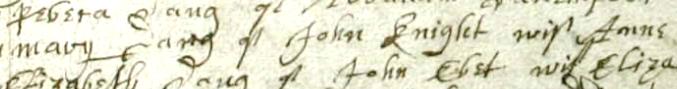 Rebeca Daug of
mary Daug of John Knight wif Anne
Elizabeth Daug of John Ebet wif Eliza